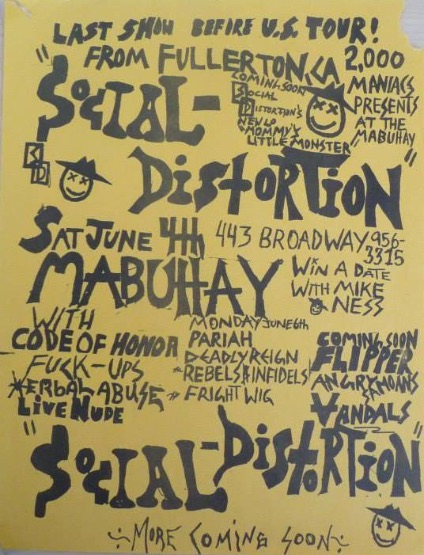 LAST SHOW BEFORE U.S. TOUR!
FROM FULLERTON, CA
2,000
MANIACS
PRESENTS
AT THE
MABUHAY
"SOCIAL-
COMING SOON
SOCIAL
DISTORTION'S
NEW LP
"MOMMY'S
LITTLE MONSTER"
SD
DISTORTION"
SAT JUNE 4th
443 BROADWAY 956-
3315
MABUHAY
WIN A DATE
WITH MIKE
NESS
WITH
CODE OF HONOR
FUCK-UPS
VERBAL ABUSE
LIVE NUDE
MONDAY JUNE 6th
PARIAH
DEADLY REIGN
REBELS & INFIDELS
FRIGHTWIG
COMING SOON
FLIPPER
ANGRY SAMOANS
VANDALS
"SOCIAL-DISTORTION"
MORE COMING SOON